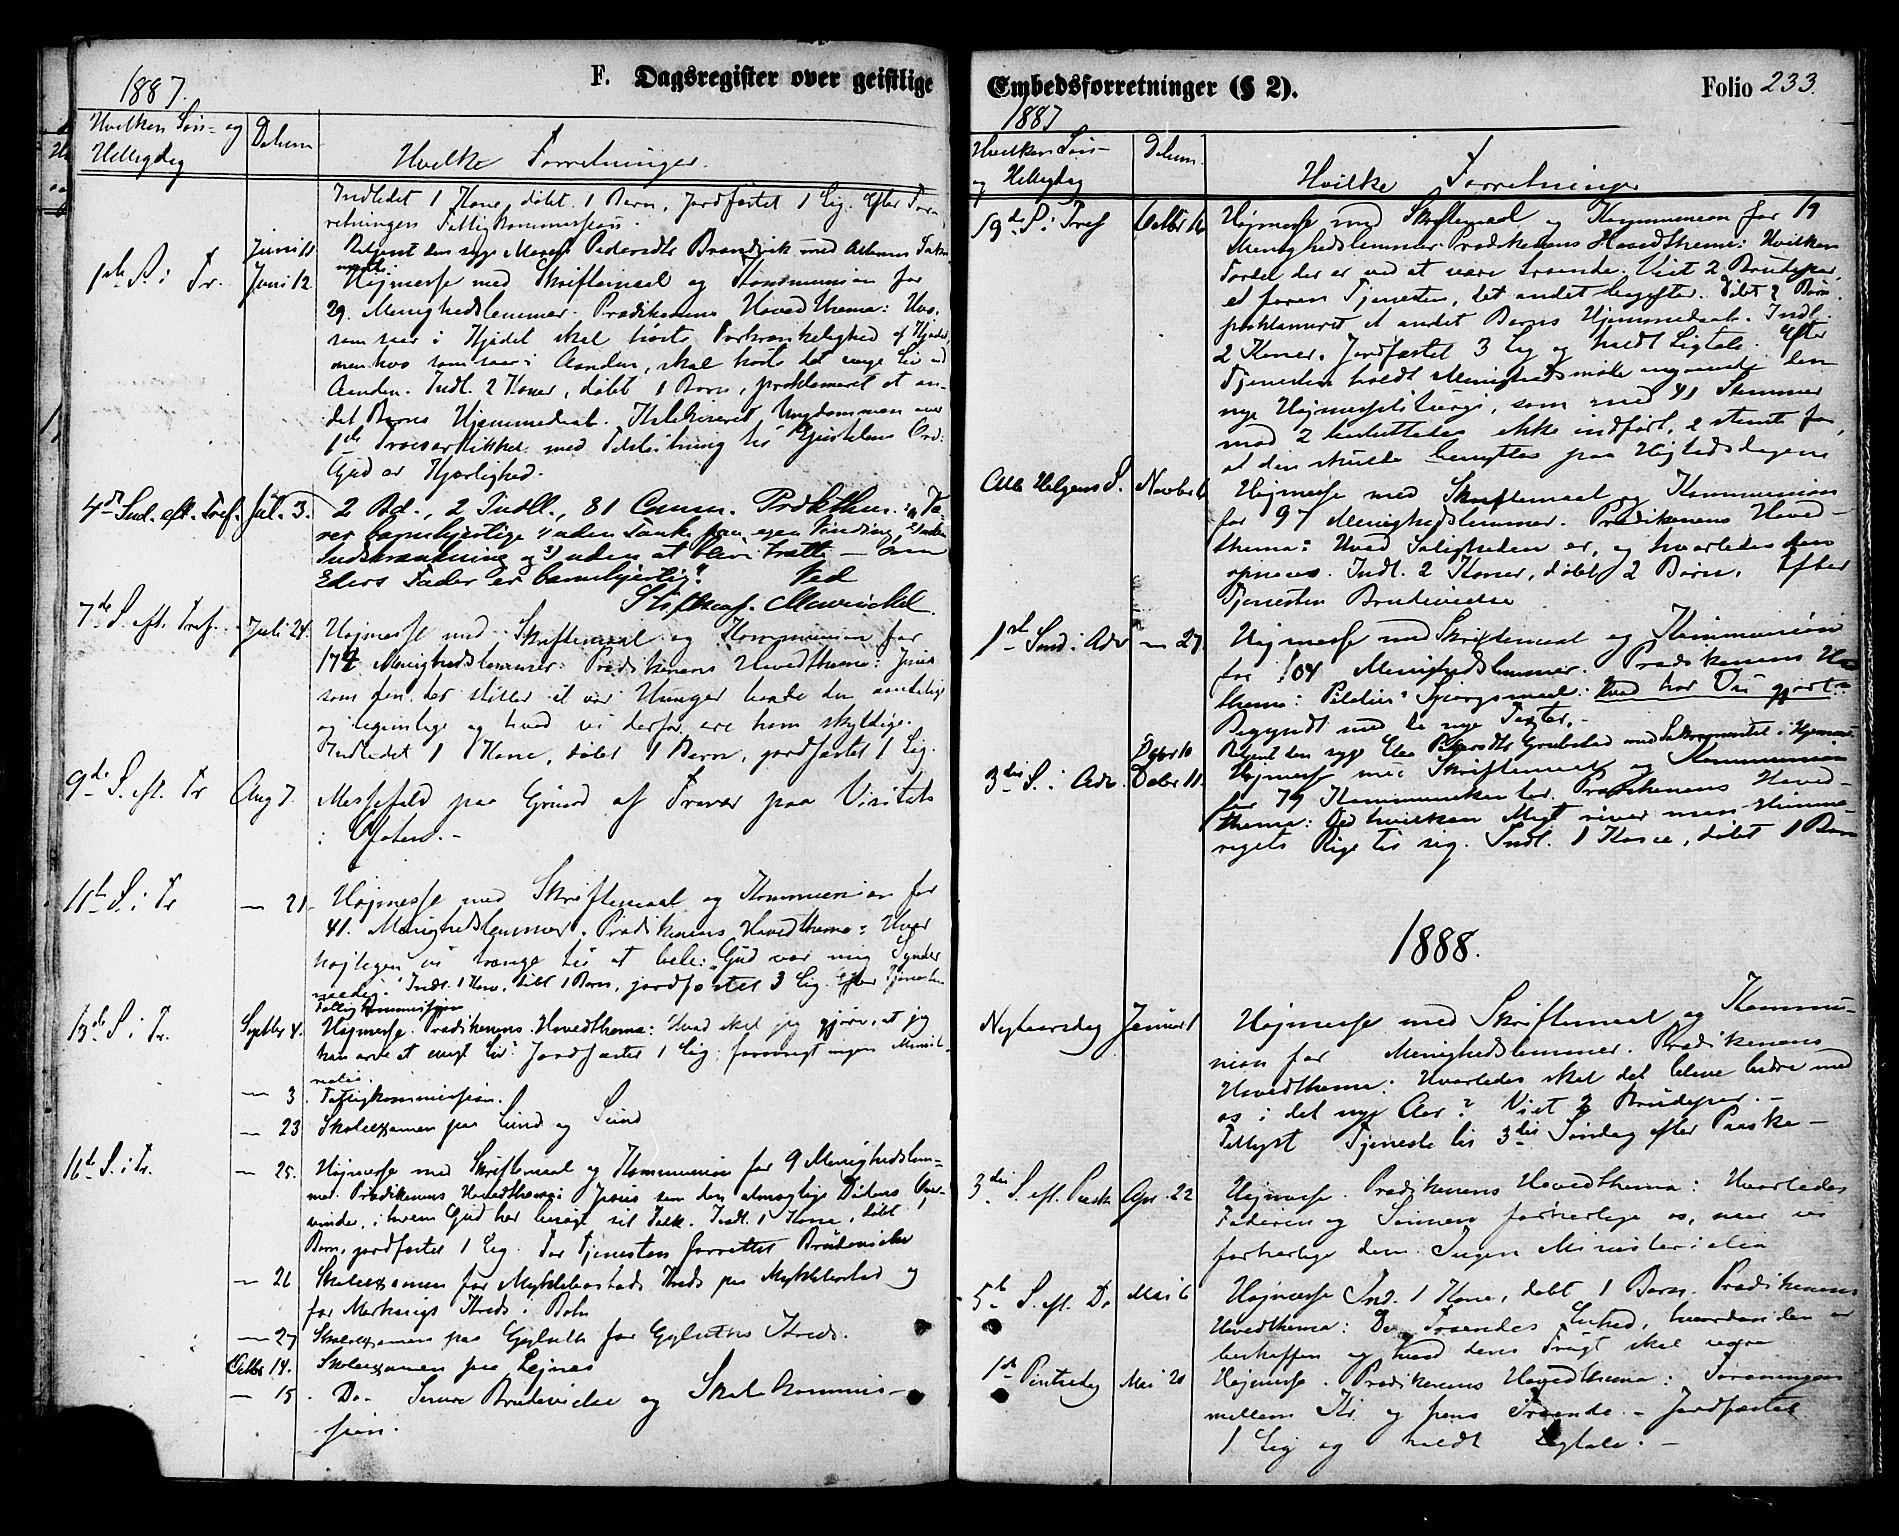 F. Dagsregister over geistlige
1887.
Hvilken Søn- og
Helligdag
Datum
Hvilke Forretninger.
Indledet 1 Kone, døbt 1 Barn, Jordfæstet 1 Lig. Efter For-
retningen Fattigkommission.
Juni 11
Betjent den syge
1ste S. i Tr.
Juni 12
Højmesse med Skriftemaal og Kommunion for
29. Menighedslemmer. Prædikenens Hovedthema: Hvo,
som saar i Kjødet skal høste Forkrænkelighed af Kjødet,
men hvo som saar i Aanden, skal høste det evige Liv af
Aanden. Indl. 2 Koner, døbt 1 Barn, proklameret et an-
det Barns Hjemmedaab. Katekiseret Ungdommen over
1ste Troesartikkel med Tilslutning til Epistelens Ord:
Gud er Kjærlighed.
4de Sønd. eft. Tref.
Jul. 3.
2 Bd., 2 Indl., 81 Comm. Prdkthm.: "Væ-
rer barmhjertige 1) uden Tanke paa egen Vinding, 2) uden
Indskrænkning og 3) uden at blive trætte – som
Eders Fader er barmhjertig." Ved
7de S. eft. Tref.
Juli 24.
Højmesse med Skriftemaal og Kommunion for
174 Menighedslemmer. Prædikenens Hovedthema: Jesus
som den der stiller al vor Hunger baade den aandelige
og legemlige og hvad vi derfor ere ham skyldige.
Indledet 1 Kone, døbt 1 Barn, jordfæstet 1 Lig.
9de S. eft. Tr
Aug 7.
Messefald paa Grund af Fravær paa Visitats
i Ofoten.–
11te S. i Tr
— 21
Højmesse med Skriftemaal og Kommunion for
41. Menighedslemmer. Prædikenens Hovedthema: Hvor
højligen vi trænge til at bede: "Gud vær mig Synder
naadig." Indl. 1 Kone, døbt 1 Barn, jordfæstet 3 Lig. Efter Tjenesten
Fattigkommission
13de S. i Tr.
Septbr 4.
Højmesse. Prædikenens Hovedthema: Hvad skal jeg gjøre, at jeg
kan arve et evigt Liv? Jordfæstet 1 Lig, forøvrigt ingen Minist-
rialia.
— 3
Fattigkommission.
— 23
Skoleexamen paa Lund og Sund
16de S. i Tr.
— 25.
Højmesse med Skriftemaal og Kommunion for 9 Menighedslem-
mer. Prædikenens Hovedthema: Jesus som den almægtige Dødens Over-
vinder, i hvem Gud har besøgt sit Folk. Indl. 1 Kone, døbt
Barn, jordfæstet 1 Lig. Før Tjenesten forrettet Brudevielse
— 26
Skoleexamen for Myklebostads Kreds paa Myklebostad og
for Kreds i
— 27
Skoleexamen paa for Kreds.
Octbr 14.
Skoleexamen paa Lejnes
— 15
Do. Brudevielse og Skolekommis-
sion.

Embedsforretninger (§ 2).
Folio 233.
1887
Hvilken Søn-
og Helligdag
Datum.
Hvilke Forretninger
19de S. i Tref
Octbr 16
Højmesse med Skriftemaal og Kommunion for 19
Menighedslemmer. Prædikenens Hovedthema: Hvilken
Fordel der er ved at være troende. Viet 2 Brudepar,
et foran Tjenesten, det andet bagefter. Døbt 2 Børn,
proklameret et andet Barns Hjemmedaab. Indl.
2 Koner. Jordfæstet 3 Lig og holdt Ligtale. Efter
Tjenesten holdt Menighedsmøde angaaende den
nye Højmesseliturgi, som med 41 Stemmer
mod 2 besluttedes ikke indført. 2 stemte for,
at den skulde benyttes paa Højtidsdagene
Alle Helgens S.
Novbr 6
Højmesse med Skriftemaal og Kommunion
for 97 Menighedslemmer. Prædikenens Hoved-
thema: Hvad Saligheden er, og hvorledes den
opnaaes. Indl. 2 Koner, døbt 2 Børn. Efter
Tjenesten Brudevielse
1ste Sønd. i Adv
— 27.
Højmesse med Skriftemaal og Kommunion
for 104 Menighedslemmer. Prædikenens Hoved-
thema: Pilatus' Spørgsmaal: Hvad har Du gjort?
Begyndt med de nye Texter.–
Decbr 10
Betjent den syge med Sakramentet i Hjemmet
3die S. i Adv.
Decbr 11.
Højmesse med Skriftemaal og Kommunion
for 79 Kommunikanter. Prædikenens Hoved-
thema: Ved hvilken Magt river man Himme-
rigets Rige til sig. Indl. 1 Kone, døbt 1 Barn
1888.
Nytaarsdag
Januar 1
Højmesse med Skriftemaal og Kommu-
nion for Menighedslemmer. Prædikenens
Hovedthema: Hvorledes skal det blive bedre med
os i det nye Aar? Viet 2 Brudepar.–
Tillyst Tjeneste til 3die Søndag efter Paaske –
3die S. eft. Paask
Apr. 22
Højmesse. Prædikenens Hovedthema: Hvorledes
Faderen og Sønnen forherlige os, naar vi
forherlige dem. Ingen Ministerialia
5te S. eft. Do
Mai 6
Højmesse Ind. 1 Kone, døbt 1 Barn. Prædikenens
Hovedthema: De Troendes Enhed, hvordan den er
beskaffen og hvad dens Frugt skal være
1ste Pintsedag
Mai 20
Højmesse. Prædikenens Hovedthema: Foreningen
mellem Kr. og hans Troende.– Jordfæstet
1 Lig og holdt Ligtale.–